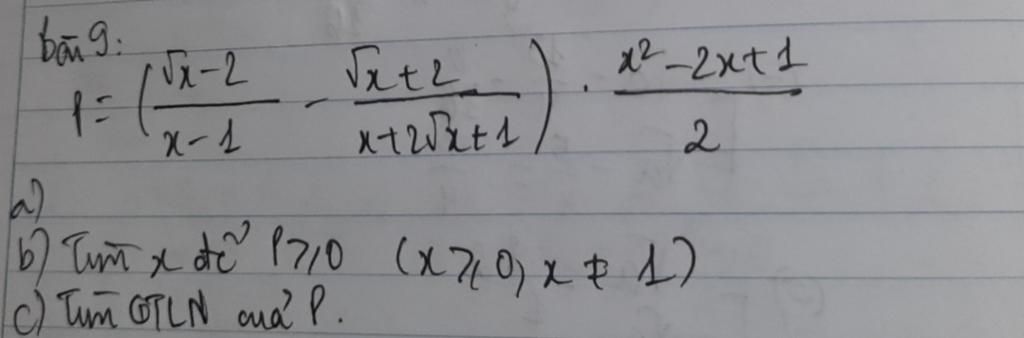 bài 9:
P = (√x - 2 / x - 1 - √x + 2 / x + 2√x + 1) . x² - 2x + 1 / 2
a)
b) Tìm x để P ≥ 0 (x ≥ 0, x ≠ 1)
c) Tìm GTLN của P.